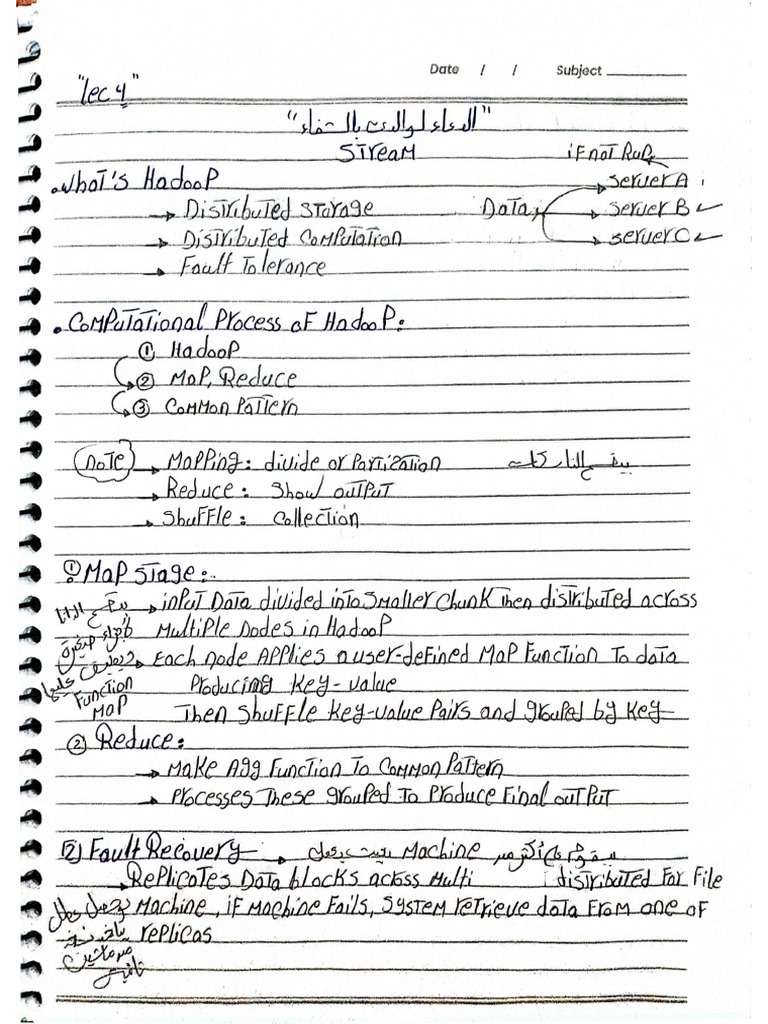 Date / / Subject
"lec 4"
"الدعاء لوالدى بالشفاء"
Stream if not Run
• What's Hadoop Server A
→ Distributed Storage Data → Server B ✓
→ Distributed Computation → Server C ✓
→ Fault Tolerance
• Computational Process of Hadoop:
① Hadoop
② Map, Reduce
③ Common Pattern
Note → Mapping: divide or Partization
→ Reduce: Show output
→ Shuffle: Collection
① Map Stage:
→ input Data divided into Smaller Chunk Then distributed across
Multiple Nodes in Hadoop
→ Each node Applies a user-defined Map Function To data
Function Producing Key-value
Map Then Shuffle Key-value Pairs and grouped by Key
② Reduce:
→ Make Agg Function To Common Pattern
→ Processes These grouped To Produce Final output
Fault Recovery → Machine
→ Replicates Data blocks across Multi distributed For File
Machine, if Machine Fails, System retrieve data From one of
replicas